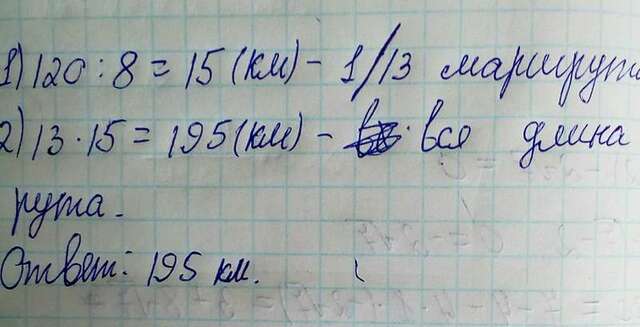 1) 120 : 8 = 15 (км) - 1/13 маршрута
2) 13 · 15 = 195 (км) - вся длина
рута.
Ответ: 195 км.